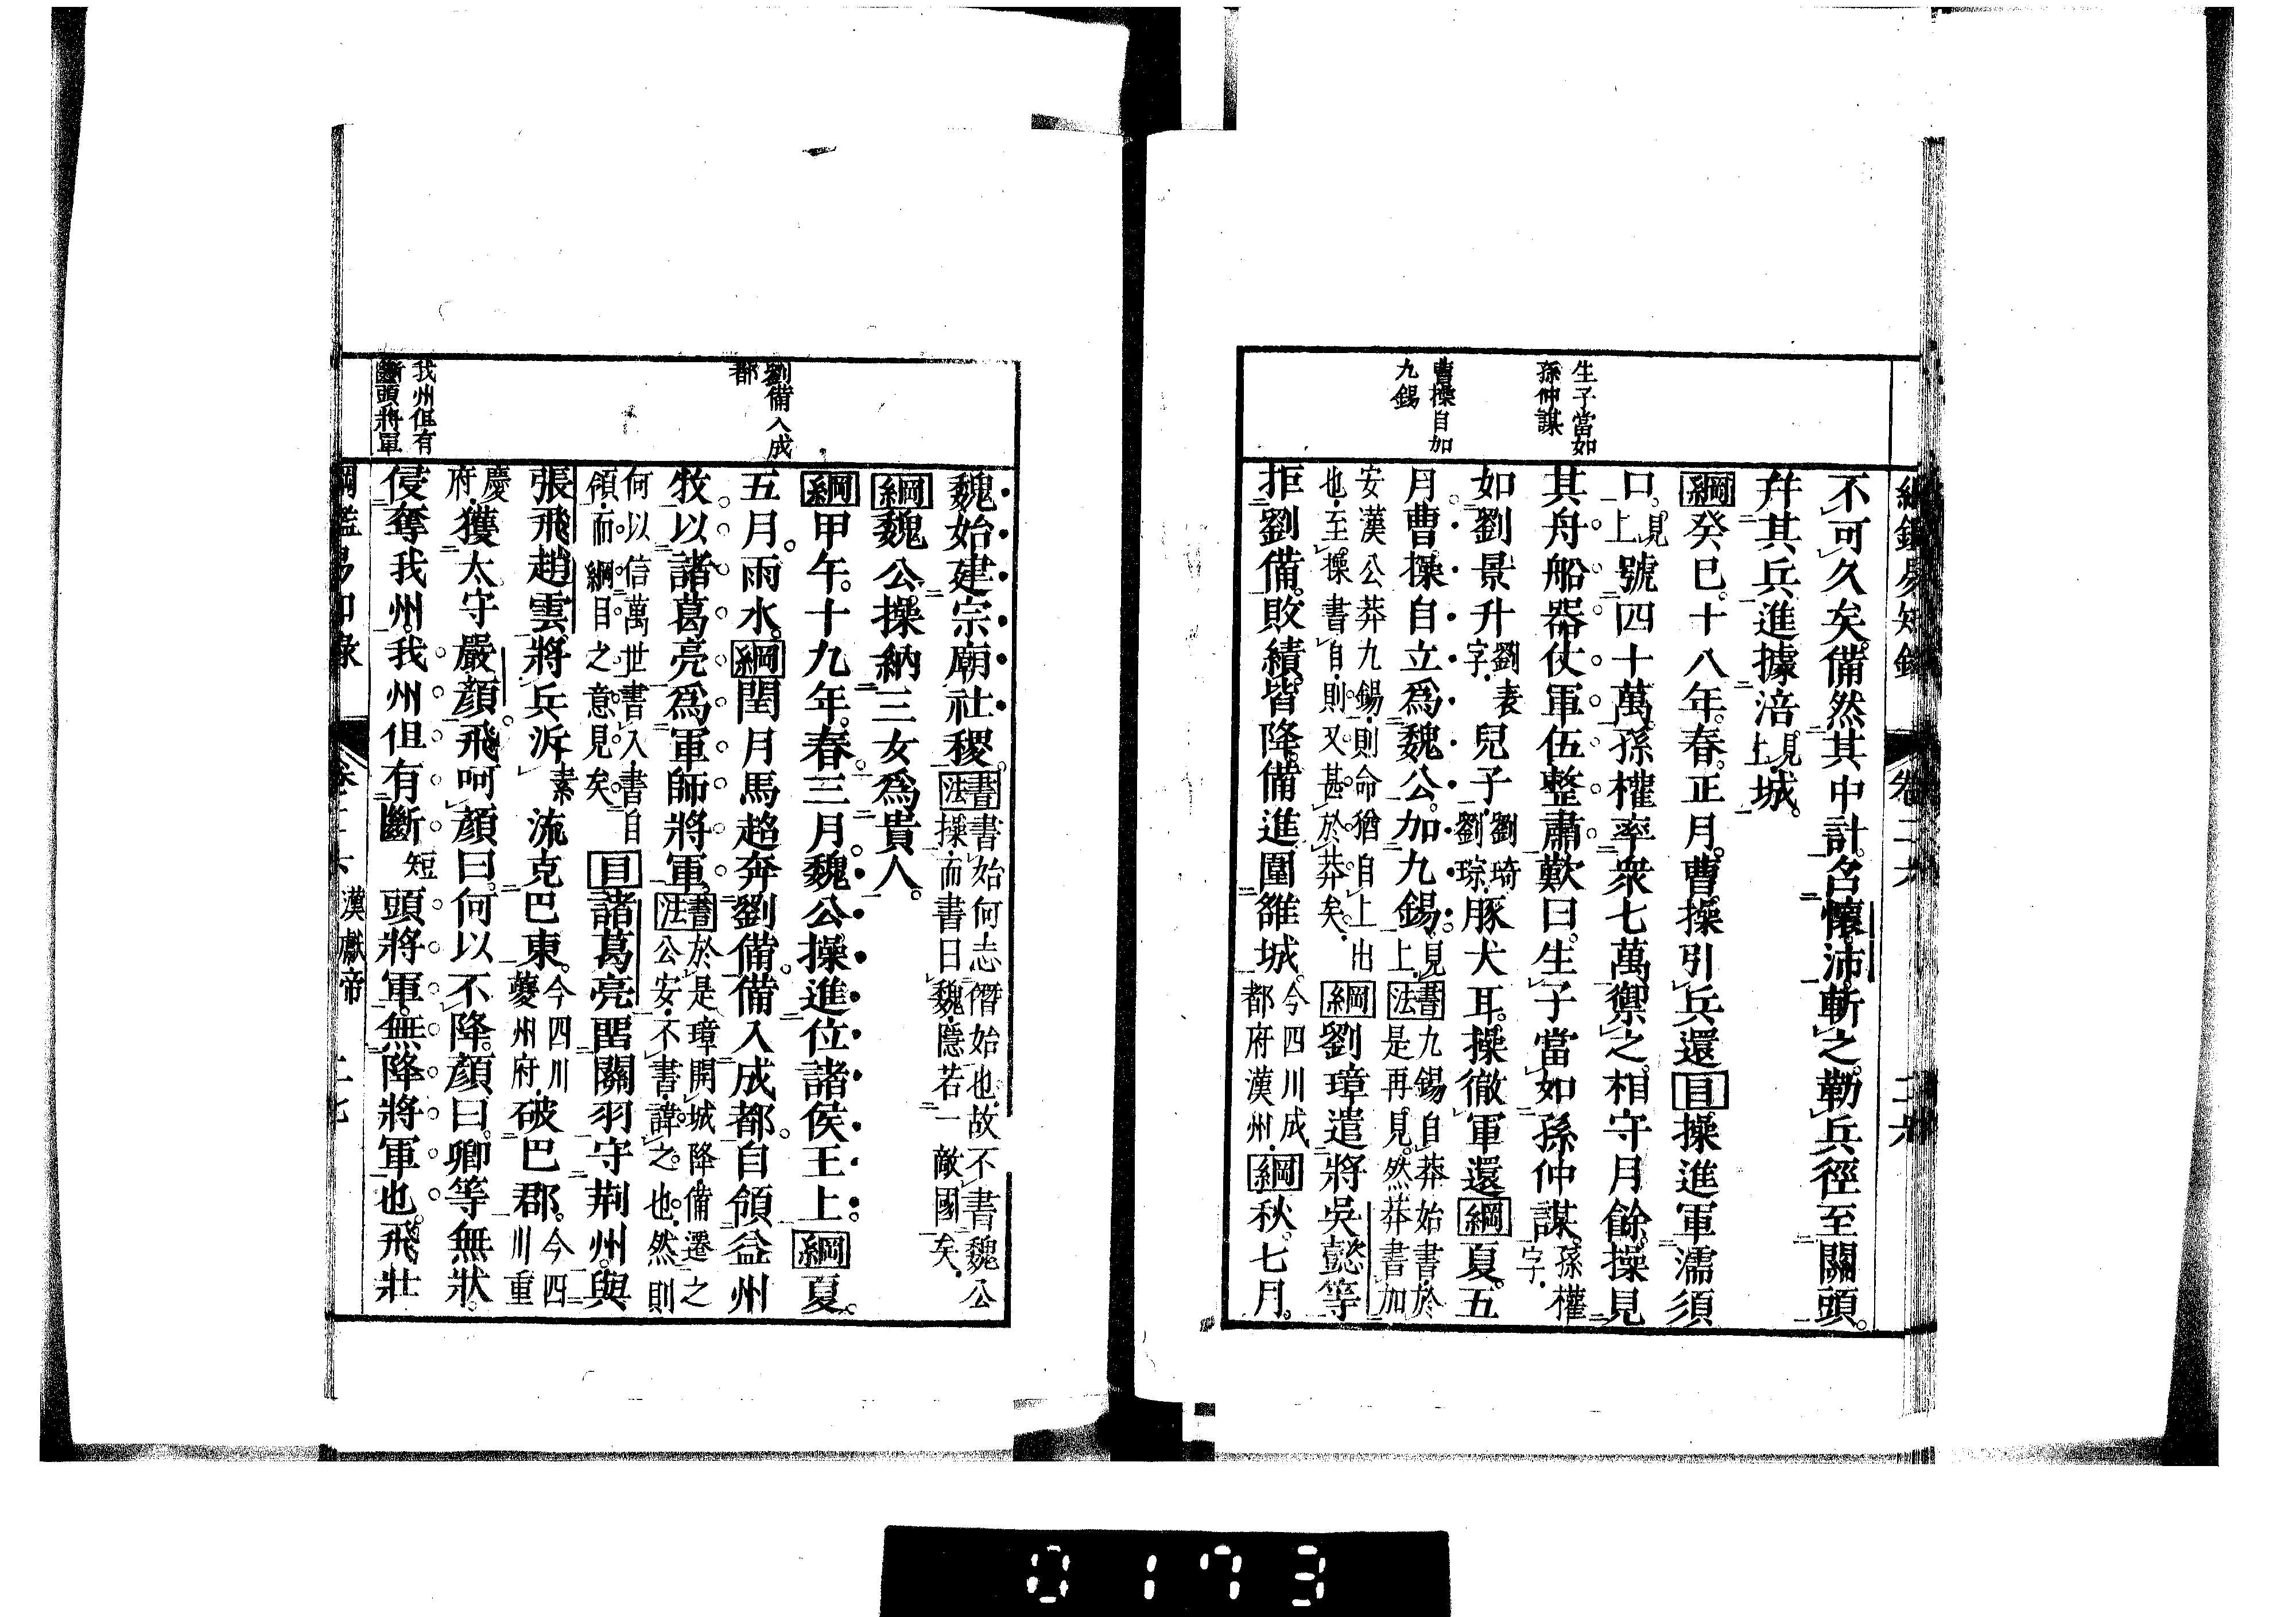 綱鑑易知錄 卷二六 二六
生子當如
孫仲謀
曹操自加
九錫
不可久矣。備然其中計。召懷沛。斬之。勒兵徑至關頭。
幷其兵。進據涪見上.城。
綱癸巳。十八年。春。正月。曹操引兵還目操進軍濡須
口。見上號四十萬。孫權率衆七萬禦之。相守月餘。操見
其舟船器仗軍伍整肅歎曰。生子當如孫仲謀。孫權字.
如劉景升劉表字.兒子劉琦劉琮.豚犬耳。操徹軍還綱夏。五
月。曹操自立爲魏公。加九錫。見上.書法九錫自莽始書.於是再見。然莽書加
安漢公莽九錫.則命猶自上出也.至操書自.則又甚於莽矣.綱劉璋遣將吳懿等
拒劉備。敗績。皆降。備進圍雒城。今四川成都府漢州.綱秋。七月。
劉備入成
都
我州但有
斷頭將軍
魏始建宗廟社稷。書法書始何志僭始也.故不書魏公操.而書曰魏.隱若一敵國矣.
綱魏公操納三女爲貴人。
綱甲午。十九年。春。三月。魏公操進位諸侯王上。綱夏。
五月。雨水。綱閏月馬超奔劉備。備入成都。自領益州
牧。以諸葛亮爲軍師將軍。書法於是璋開城降.備遷之公安.不書.諱之也.然則
何以信萬世書入書自領.而綱目之意見矣.目諸葛亮畱關羽守荆州。與
張飛趙雲將兵泝素流克巴東。今四川夔州府.破巴郡。今四川重
慶府.獲太守嚴顏。飛呵顏曰。何以不降。顏曰。卿等無狀。
侵奪我州。我州但有斷短頭將軍。無降將軍也。飛壯
綱鑑易知錄 卷二六 漢獻帝 二七
0173